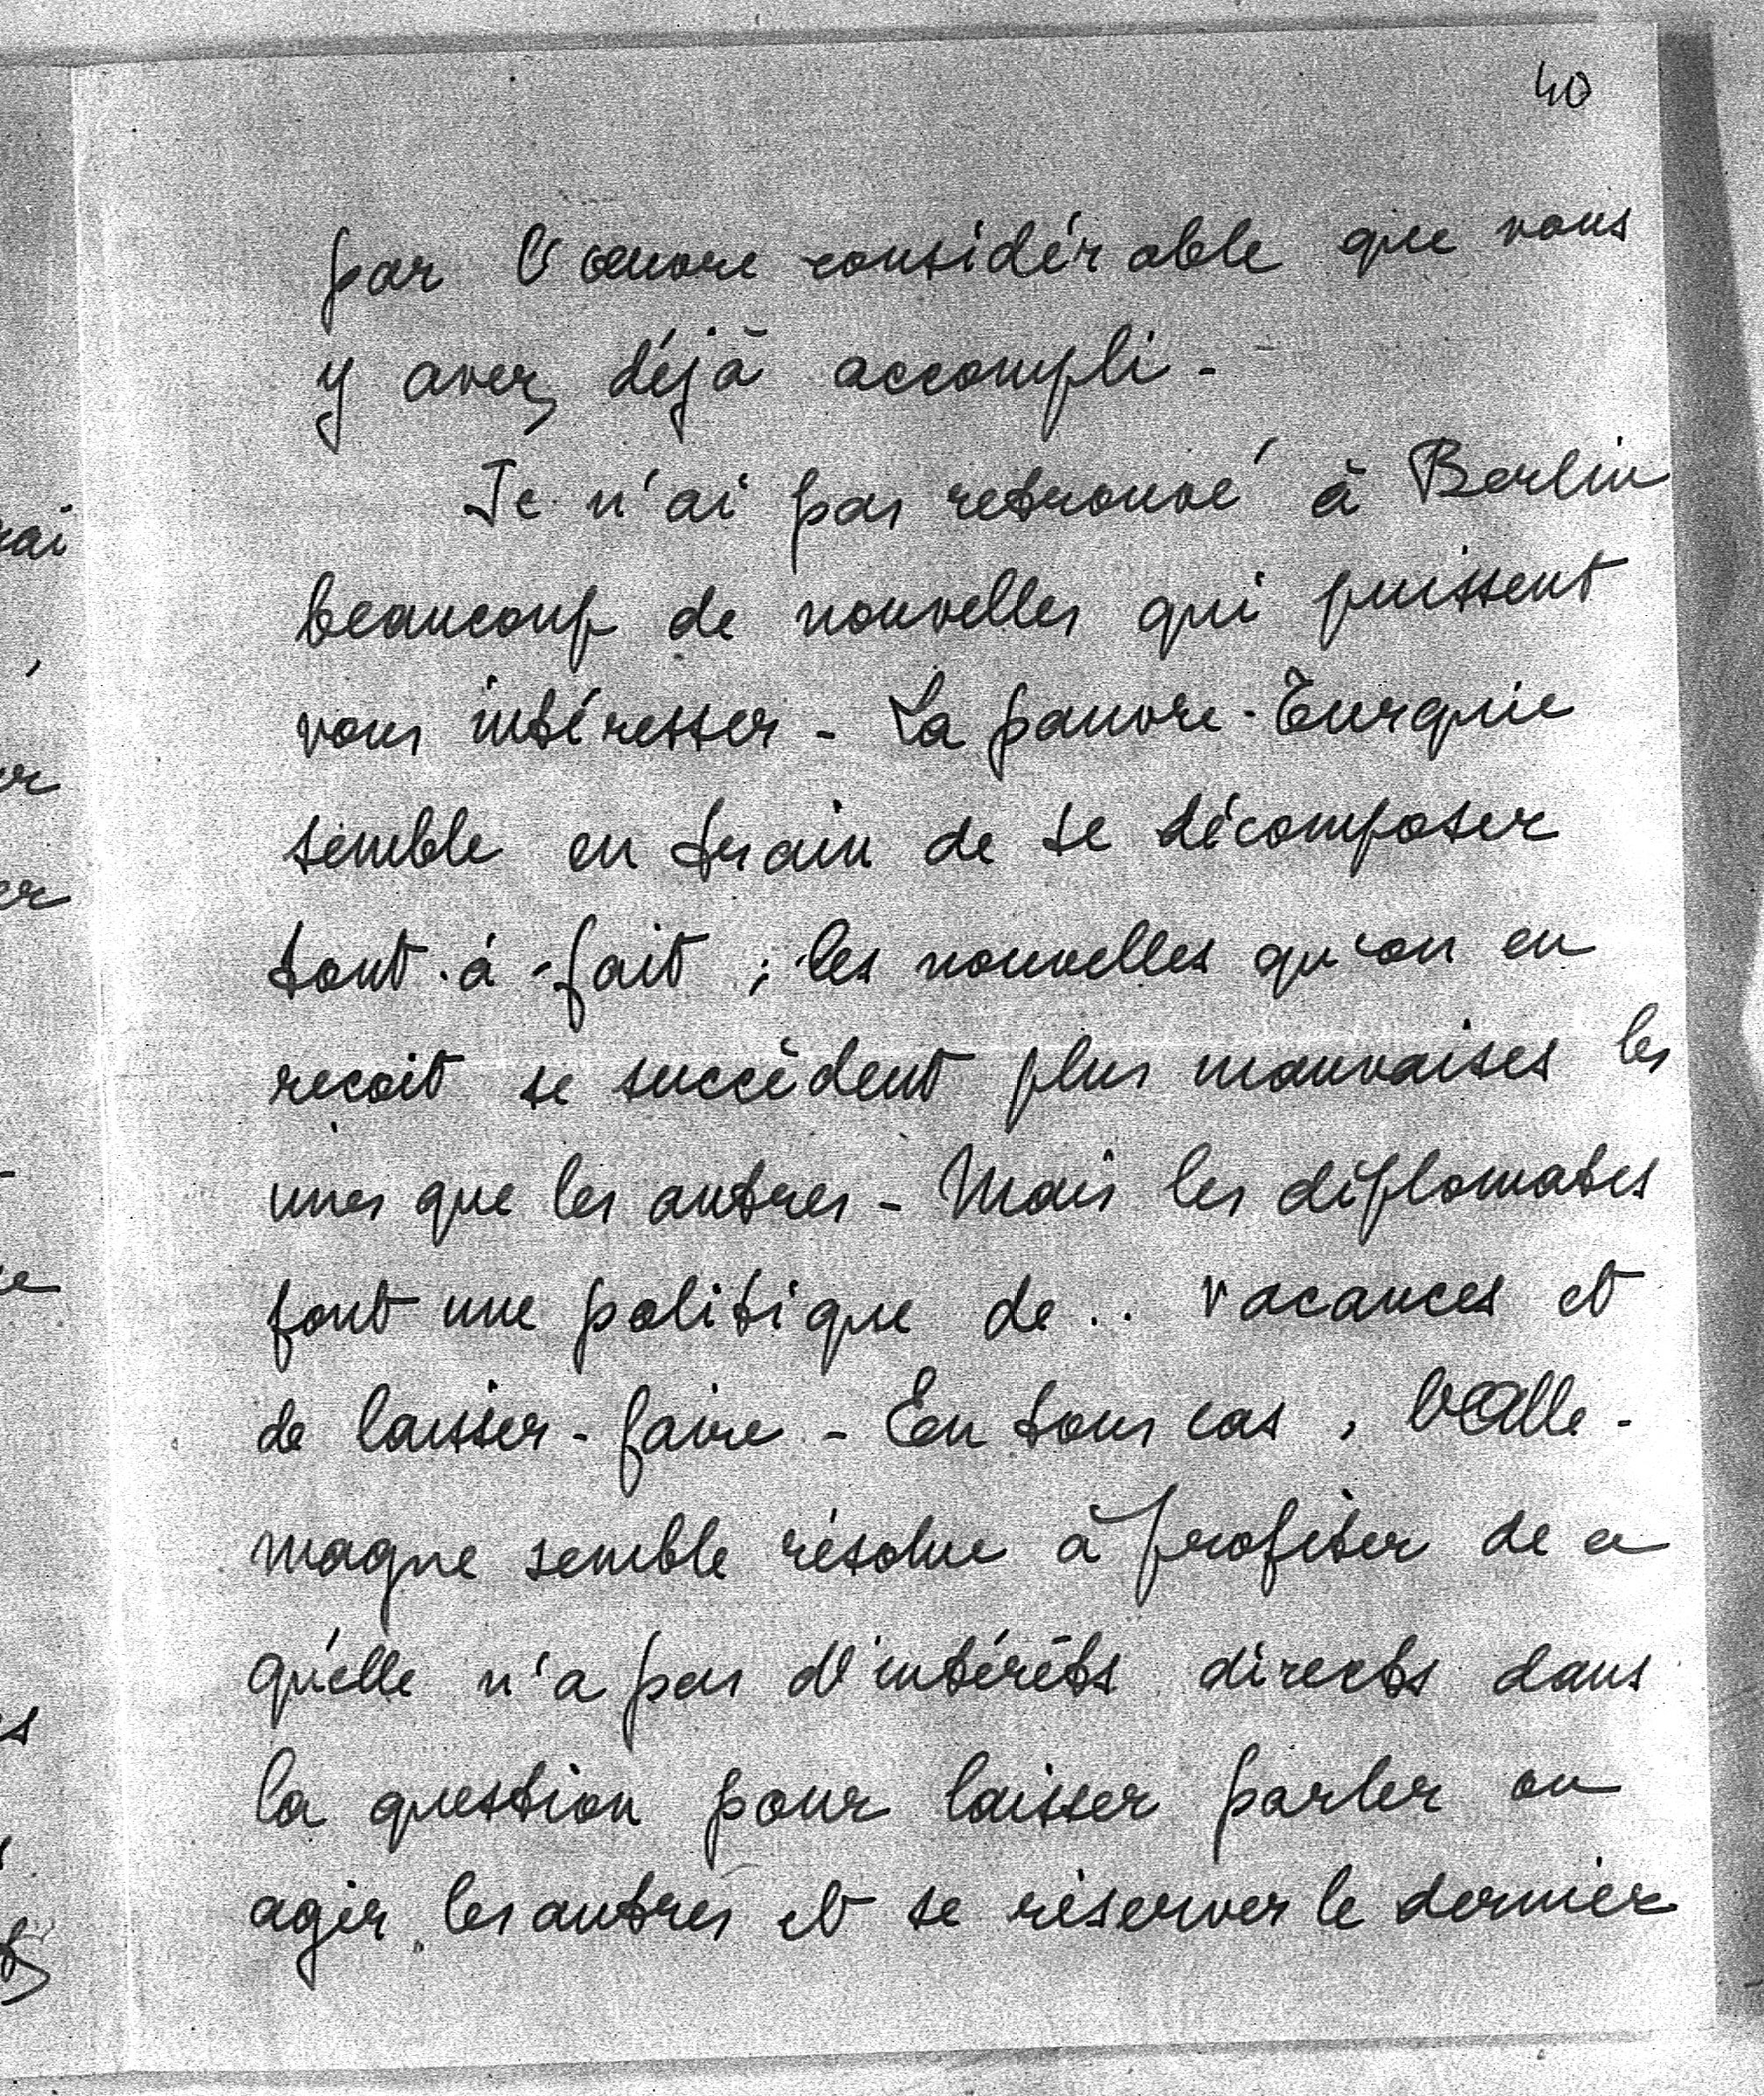 40
par l'œuvre considérable que vous
y avez déjà accompli -
Je n'ai pas retrouvé à Berlin
beaucoup de nouvelles qui puissent
vous intéresser - La pauvre Turquie
semble en train de se décomposer
tout-à-fait ; les nouvelles qu'on en
reçoit se succèdent plus mauvaises les
unes que les autres - Mais les diplomates
font une politique de .. vacances et
de laisser-faire - En tous cas, l'Alle-
magne semble résolue à profiter de ce
qu'elle n'a pas d'intérêts directs dans
la question pour laisser parler ou
agir les autres et se réserver le dernier